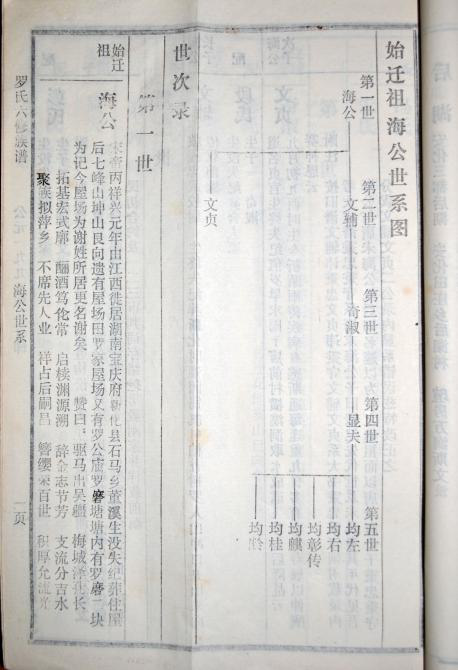 始迁祖海公世系图
第一世
第二世
第三世
第四世
第五世
海公
文辅
奇淑
显夫
均左
均右
均彰传
均麒
均桂
文贞
世次录
第一世
始迁祖
海公
宋帝丙祥兴元年由江西徙居湖南宝庆府 化县石马乡董溪生没失纪葬住屋
后七峰山坤山艮向遗有屋场田罗家屋场又有罗公庙罗磨塘塘内有罗磨二块
为记今屋场为谢姓所居更名谢矣 赞曰：驱马出吴 梅城泽孔长
拓基宏式廓 酾酒笃伦常 启椟渊源溯 辞金志节芳 支流分吉水
聚族拟萍乡 不席先人业 祥占后嗣昌 簪缨荣百世 积厚允流光
罗氏六修族谱
公元一九九
海公世系
一页